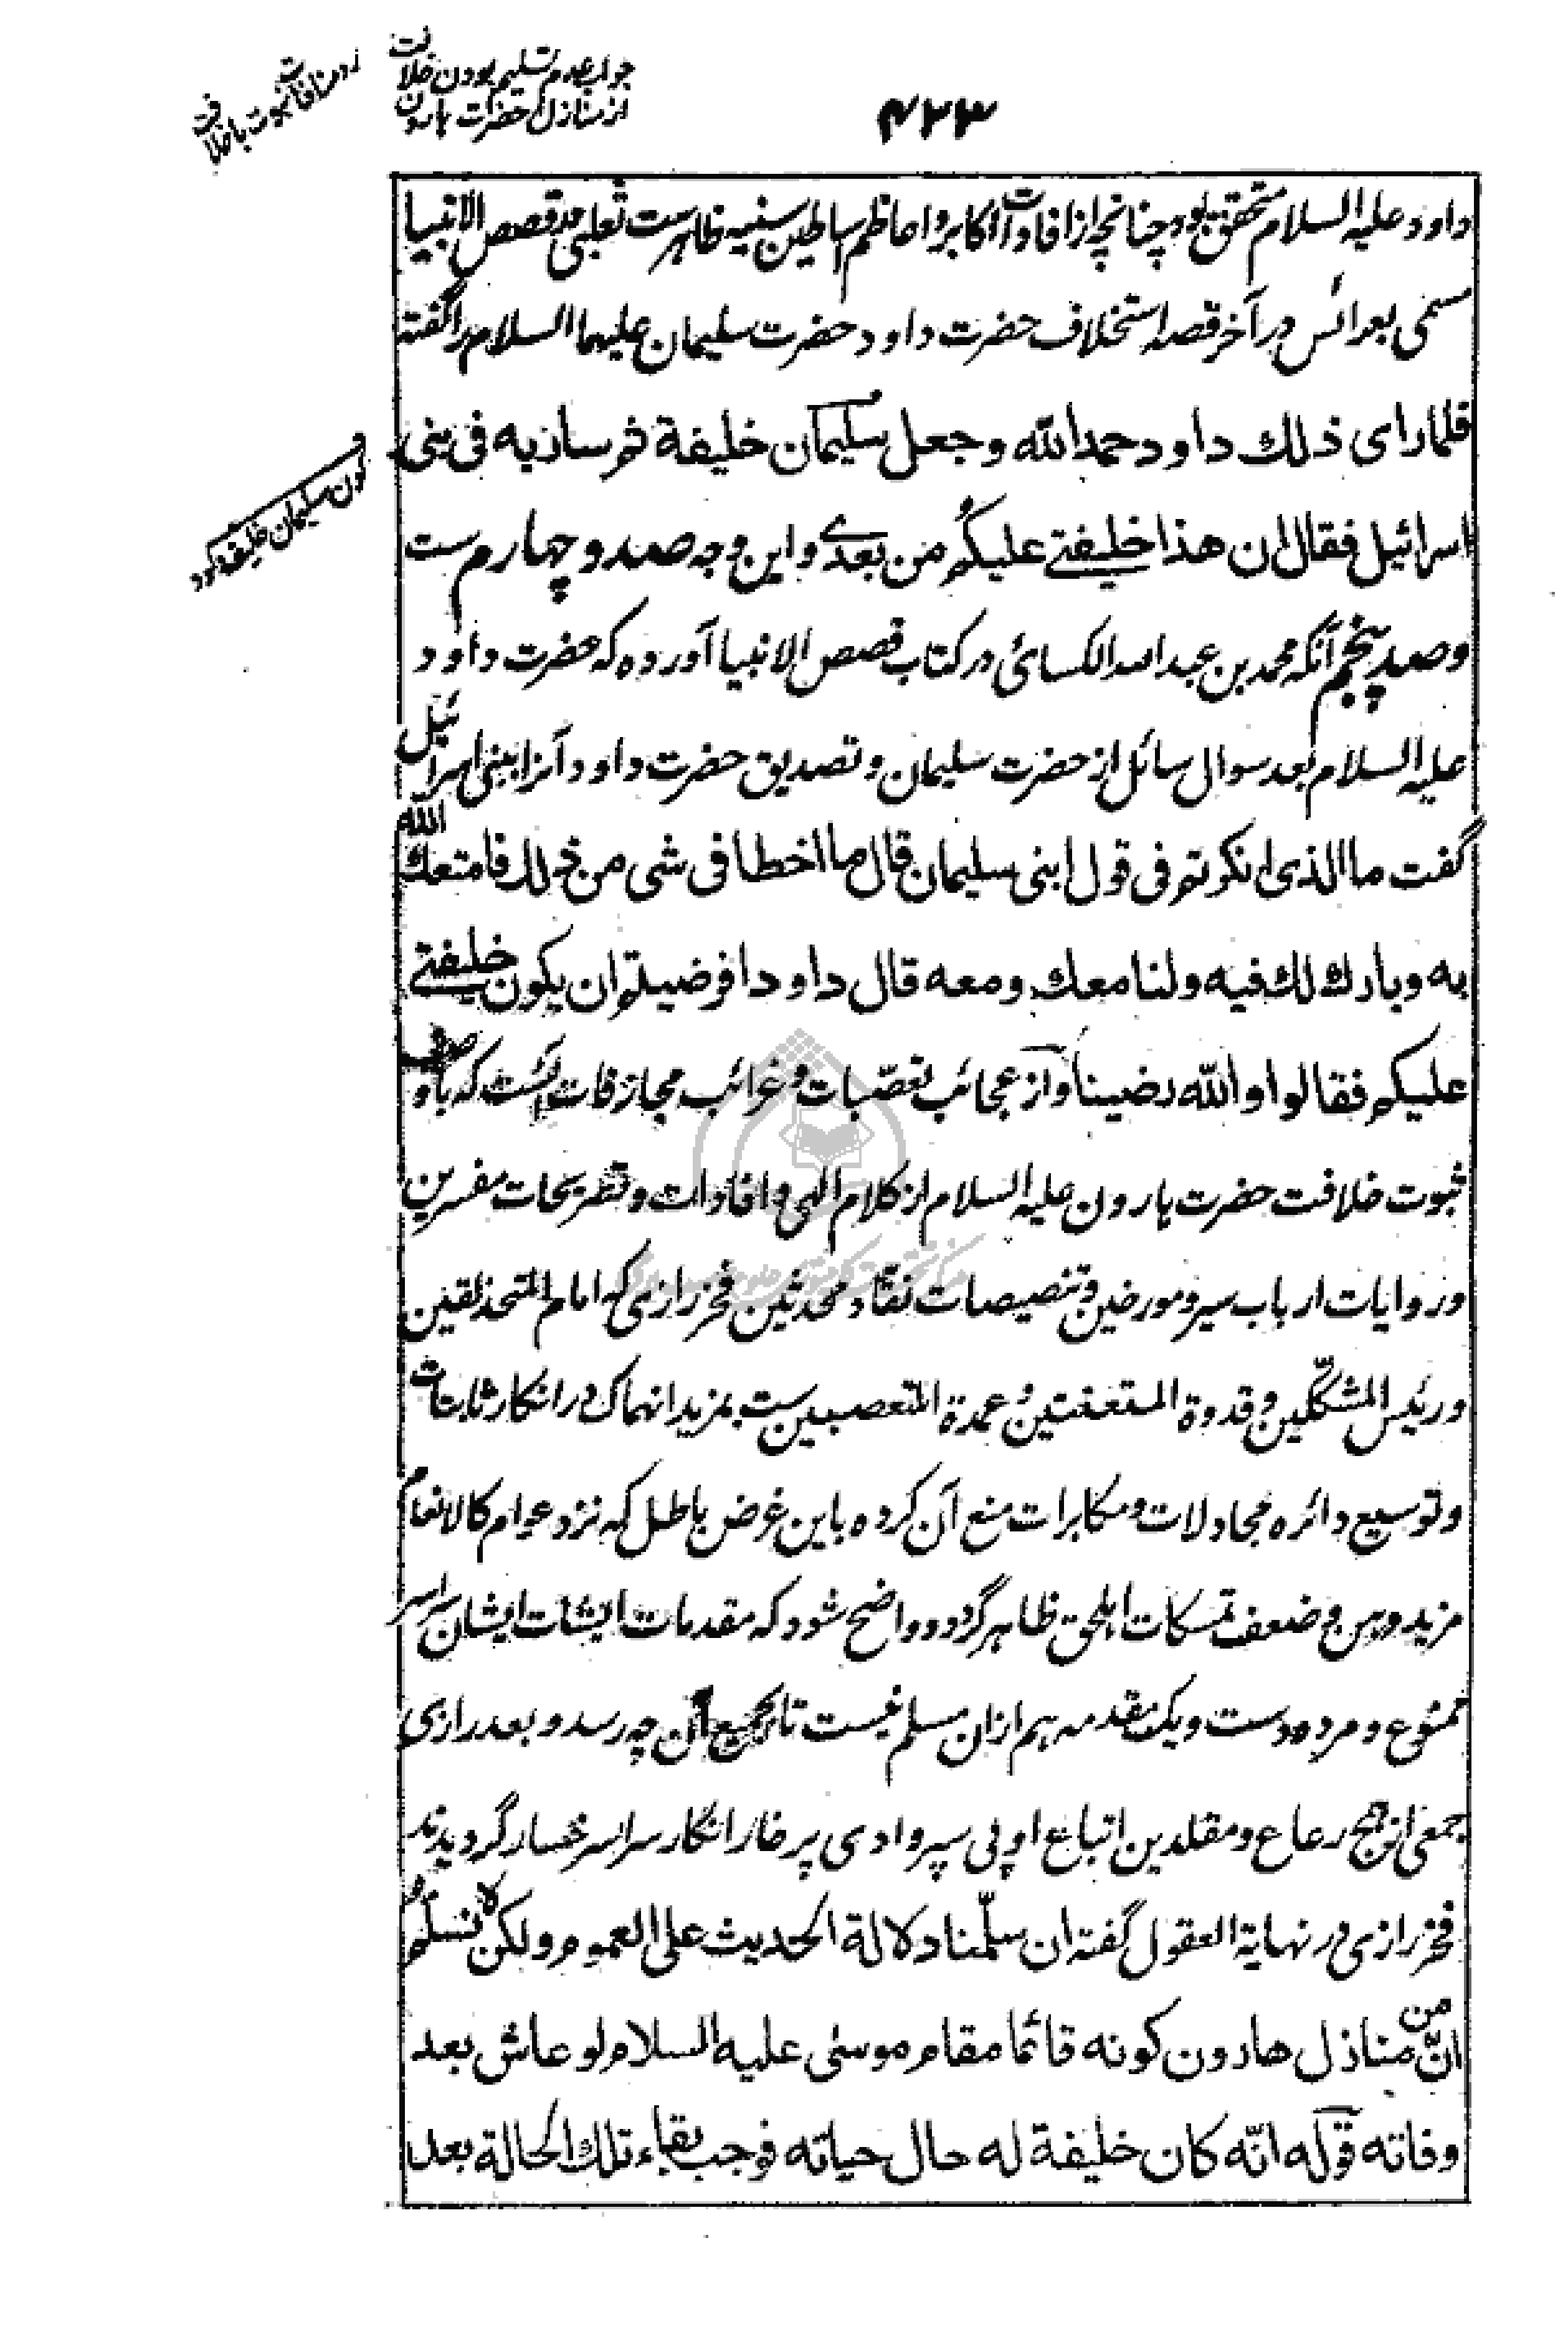 ردمنافات نبوت با خلافت
جواب عدم تسلیم بودن خلافت
از منازل حضرت هارون
۴۲۳
داود علیه السلام متحقق بود چنانچه از افادات اکابر و اعاظم اساطین سنیه ظاهرست ثعلبی در قصص الانبیا
مسمی بعرائس در آخر قصه استخلاف حضرت داود حضرت سلیمان علیهما السلام را گفته
فلما رای ذلك داود حمد الله وجعل سلیمان خلیفة ثم سار به فی بنی
اسرائیل فقال ان هذا خلیفتی علیکم من بعدی و این وجه صد و چهارم ست
کون سلیمان خلیفه داود
و صد و پنجم آنکه محمد بن عبد الله الکسائی در کتاب قصص الانبیا آورده که حضرت داود
علیه السلام بعد سوال سائل از حضرت سلیمان و تصدیق حضرت داود آنرا ببنی اسرائیل
گفت ما الذی انکرتم فی قول ابنی سلیمان قال ما اخطا فی شی من ذلك فامتعك الله
به وبارك لك فیه ولنا معك ومعه قال داود افرضیتم ان یکون خلیفتی
علیکم فقالوا والله رضینا و از عجائب تعصبات و غرائب مجازفات اینست که با وصف
ثبوت خلافت حضرت هارون علیه السلام از کلام الهی و افادات و تصریحات مفسرین
و روایات ارباب سیر و مورخین و تنصیصات نقاد محدثین فخر رازی که امام المتحذلقین
و رئیس المشککین و قدوة المتعنتین و عمدة المتعصبین ست بمزید انهماک در انکار ثابتات
و توسیع دائره مجادلات و مکابرات منع آن کرده باین غرض باطل که نزد عوام کالانعام
مزید وهن و ضعف تمسکات اهلحق ظاهر گردد و واضح شود که مقدمات اثبات ایشان سراسر
ممنوع و مردودست و یک مقدمه هم ازان مسلم نیست تا بجمیع آن چه رسد و بعد رازی
جمعی از همج رعاع و مقلدین اتباع او پی سپر وادی پر خار انکار سراسر خسار گردیدند
فخر رازی در نهایة العقول گفته ان سلّمنا دلالة الحدیث علی العموم ولکن لا نسلّم
انّ من منازل هارون کونه قائما مقام موسی علیه السلام لو عاش بعد
وفاته قوله انّه کان خلیفة له حال حیاته فوجب بقاء تلك الحالة بعد